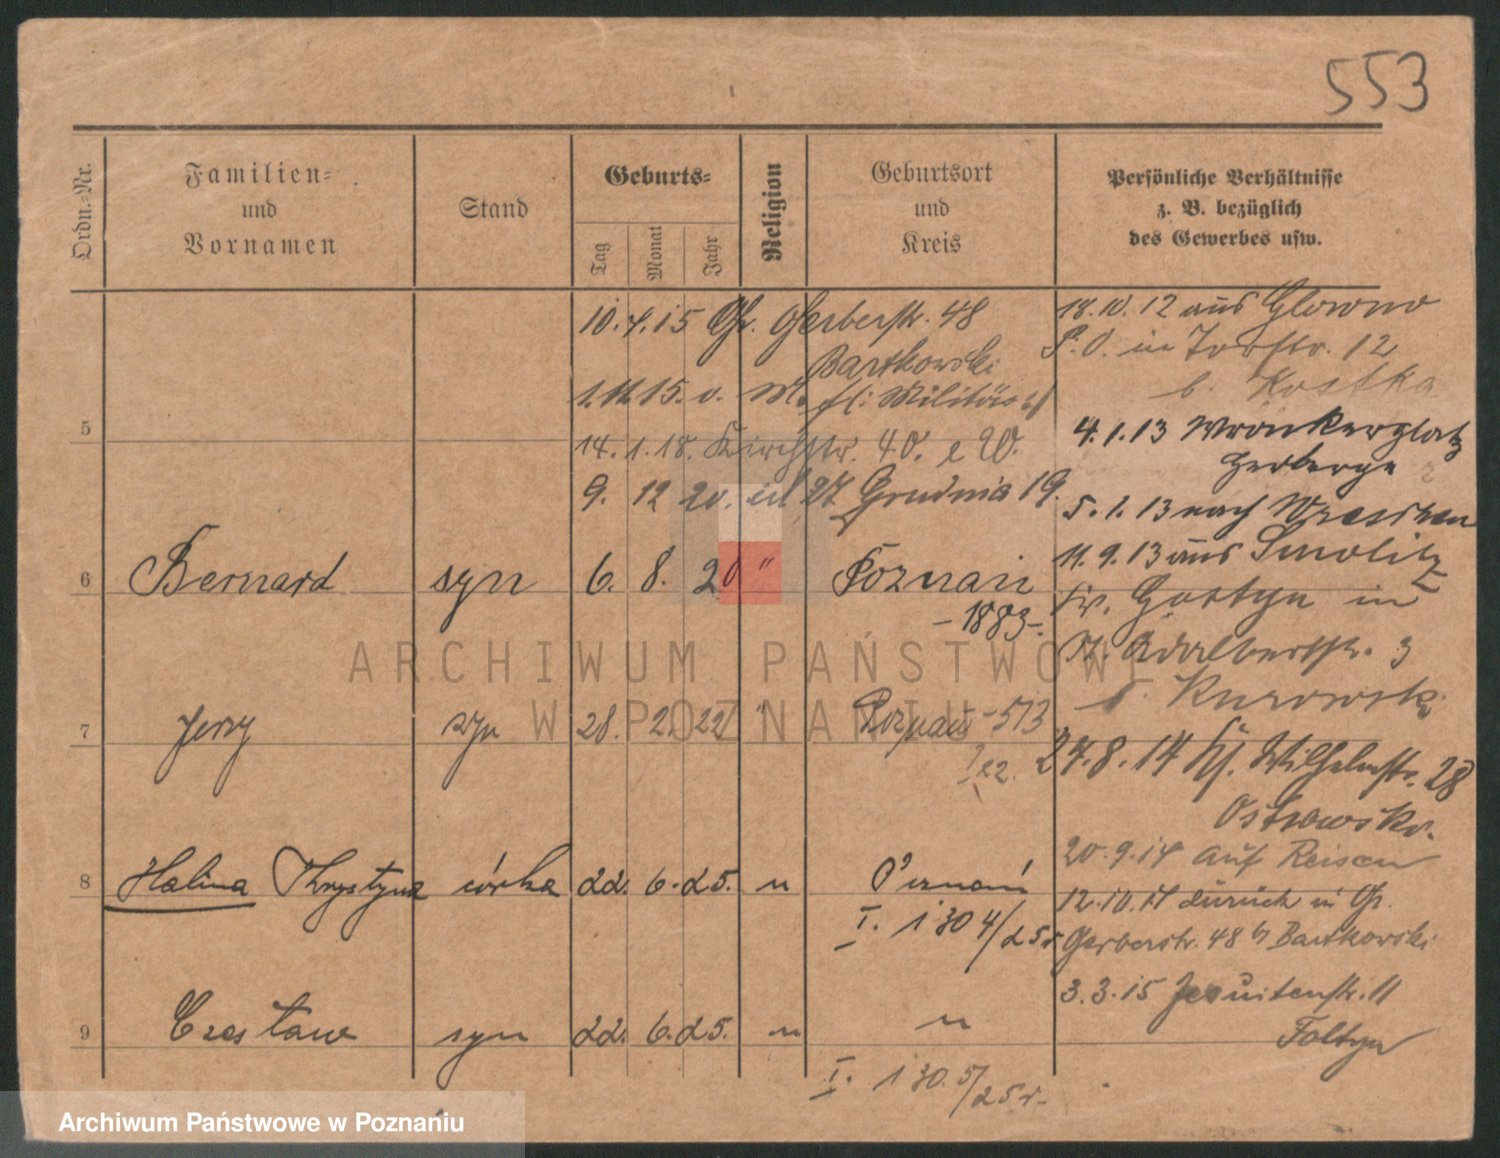 553
Ordn.-Nr.
Familien-
und
Vornamen
Stand
Geburts-
Tag
Monat
Jahr
Religion
Geburtsort
und
Kreis
Persönliche Verhältnisse
z. B. bezüglich
des Gewerbes usw.
10.4.15 Gr. Gerberstr. 48
Bartkowski
1.11.15. v. M. fl: Militär
14.1.18. Kirchstr. 40.
9. 12 20. ul 27 Grudnia 19.
5
6 Bernard syn 6. 8. 20 " Poznań
-1883-
7 Jerzy syn 28. 2. 22 " Poznań -513
I 22.
8 Halina Krystyna córka 22. 6. 25. " Poznań
I. 1304/25 r
9 Czesław syn 22. 6. 25. " "
I. 1305/25 r.
18.10.12 aus Glowno
P.O. in Torstr. 12
b. Kostka
4.1.13 Wronkerplatz
Herberge
5.1.13 nach Wreschen
11.9.13 aus Smolitz
Kr. Gostyn in
St. Adalbertstr. 3
b. Kurowski
27.8.14 Wilhelmstr. 28
Ostrowski.
20.9.14 auf Reisen
12.10.14 zurück in Gr.
Gerberstr. 48 b/ Bartkowski
3.3.15 Jesuitenstr. 11
Foltyn
ARCHIWUM PAŃSTWOWE
W POZNANIU
Archiwum Państwowe w Poznaniu